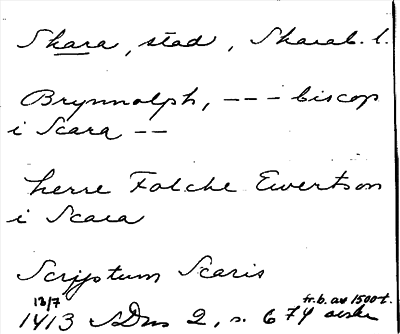 Skara, stad, Skarab. l.
Brynnolph, --- biscop
i Scara --
herre Folche Ewertson
i Scara
Scriptum Scaris
13/7 fr. b. av 1500 t.
1413 SDns 2, s. 674 avskr